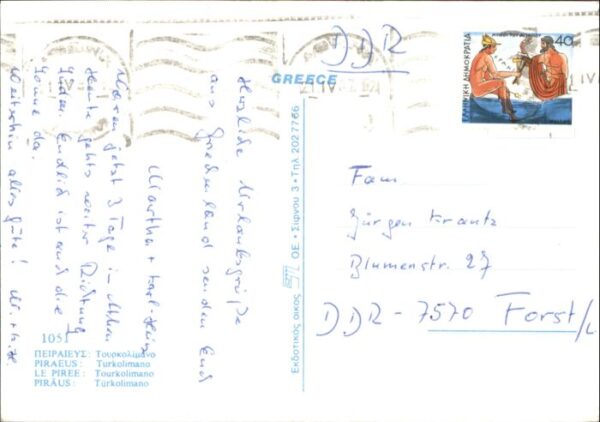 DDR
GREECE
40
ΕΛΛΗΝΙΚΗ ΔΗΜΟΚΡΑΤΙΑ
Herzliche Urlaubsgrüße
aus Griechenland senden Euch
Martha + Karl-Heinz
Waren jetzt 3 Tage in Athen
Heute gehts weiter Richtung
Süden. Endlich ist auch die
Sonne da.
Weiterhin alles Gute!
Fam.
Jürgen Krautz
Blumenstr. 27
DDR - 7570 Forst/L
Εκδοτικος οικος ΟΕ • Σιφνου 3 • Τηλ 2027766
1051
ΠΕΙΡΑΙΕΥΣ: Τουρκολίμανο
PIRAEUS: Turkolimano
LE PIREE: Tourkolimano
PIRÄUS: Türkolimano